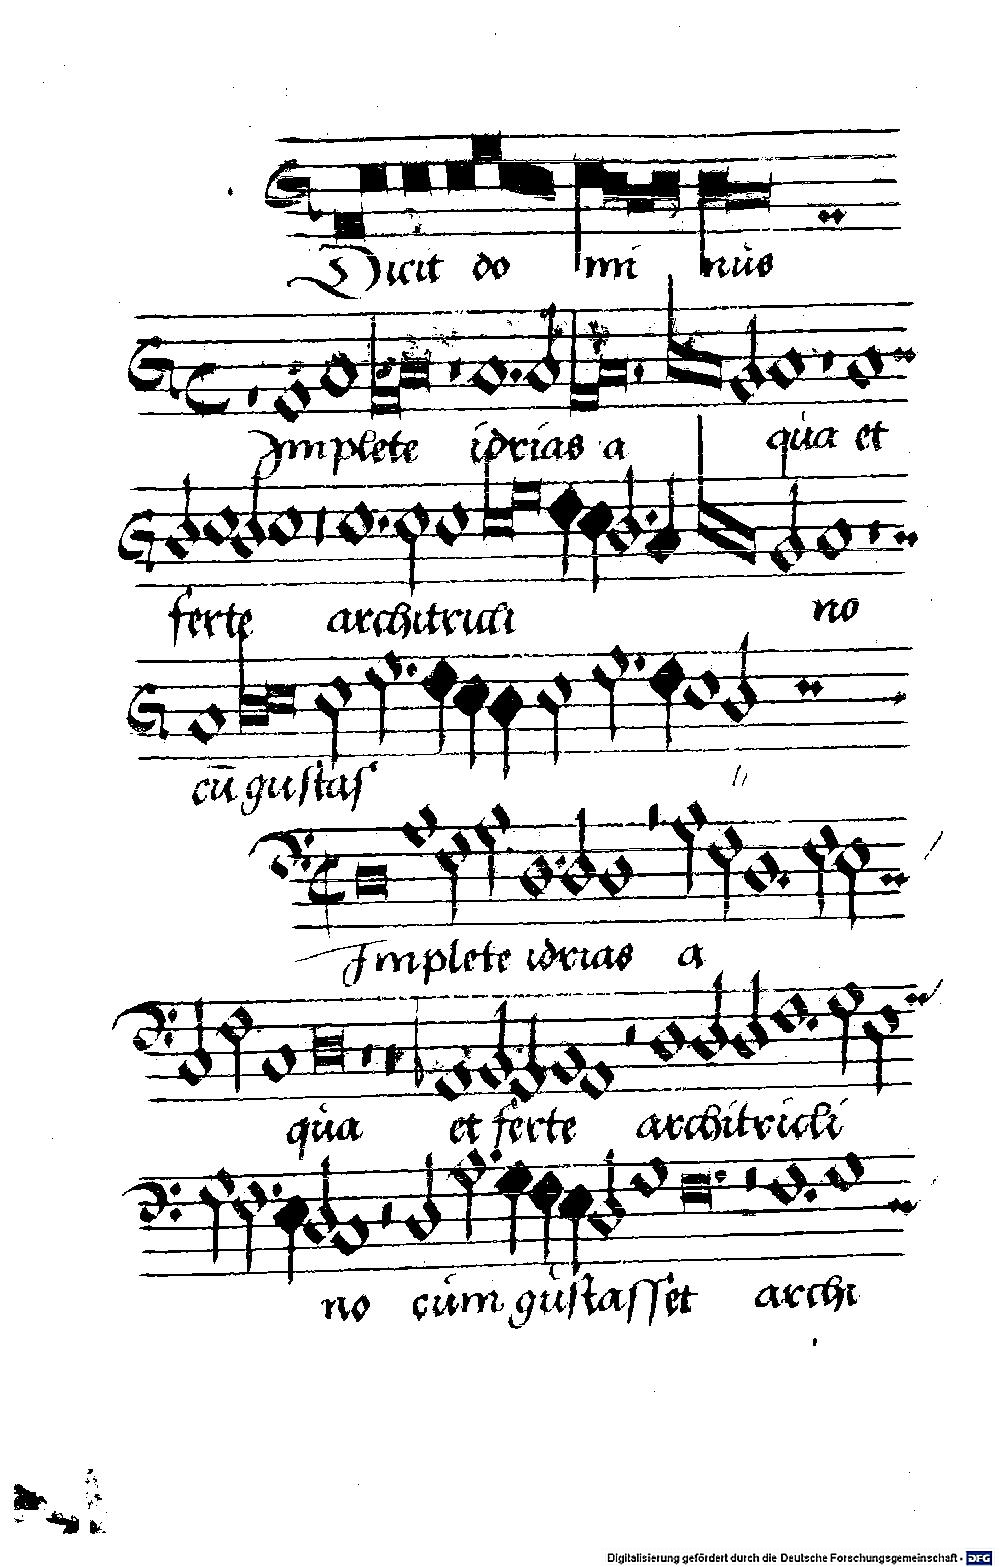 Dicit do mi nus
Implete idrias a qua et
ferte architricli no
cū gustas
Implete idrias a
qua et ferte architricli
no cum gustasset archi
Digitalisierung gefördert durch die Deutsche Forschungsgemeinschaft - DFG